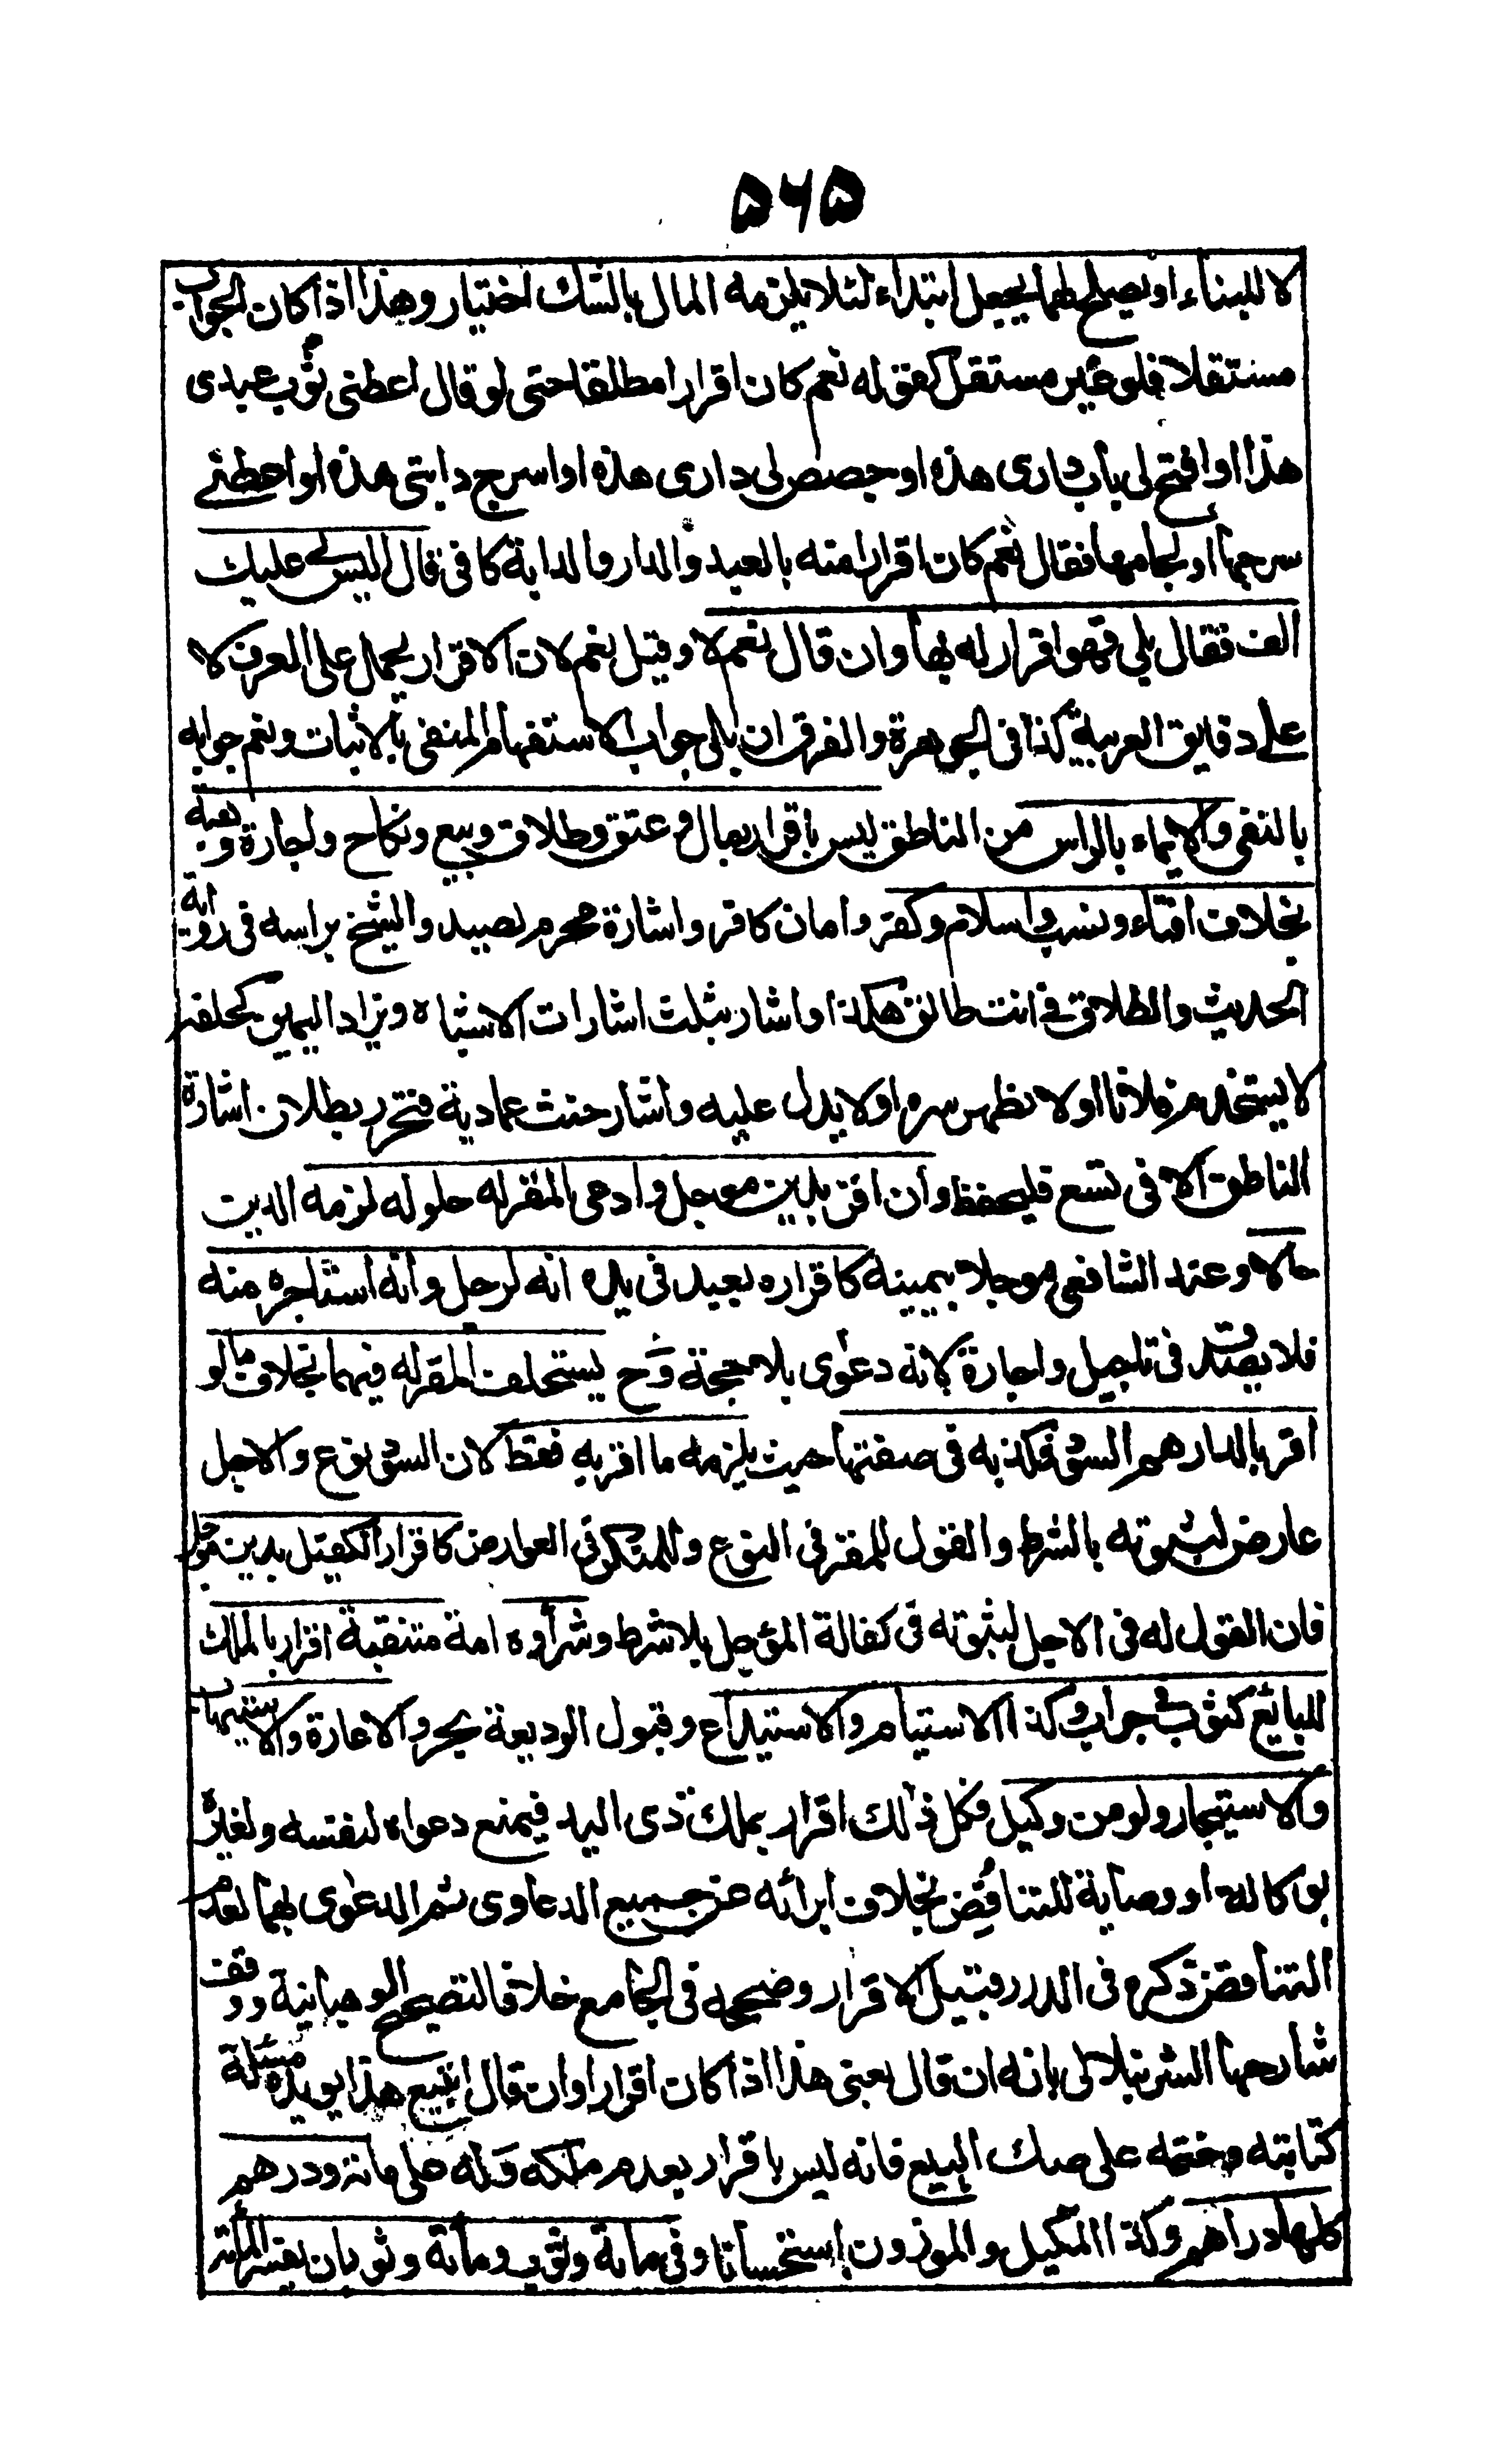 ۵۶۵
لا للبناء او يصلح لهما يجعل ابتداء لئلا يلزمه المال بالشك اختيار وهذا اذا كان الجواب
مستقلا فلو غير مستقل كقوله نعم كان اقرارا مطلقا حتى لو قال اعطنى ثوب عبدى
هذا او افتح لى باب دارى هذه او جصص لى دارى هذه او اسرج دابتى هذه او اعطنى
سرجها او لجامها فقال نعم كان اقرارا منه بالعبد والدار والدابة كافى قال اليس لى عليك
الف فقال بلى فهو اقرار له بها وان قال نعم لا وقيل نعم لان الاقرار يحمل على العرف لا
على دقايق العربية كذا فى الجوهرة والفرق ان بلى جواب الاستفهام المنفى بالاثبات ونعم جوابه
بالنفى والايماء بالراس من الناطق ليس باقرار بمال وعتق وطلاق وبيع ونكاح واجارة وهبة
بخلاف افتاء ونسب واسلام وكفر وامان كافر واشارة محرم لصيد والشيخ براسه فى رواية
الحديث والطلاق فى انت طالق هكذا واشار بثلث اشارات الاشباه ويزاد اليمين كحلفه
لا يستخدم فلانا اولا يظهر سره اولا يدل عليه واشار حنث عمادية فتحرر بطلان اشارة
الناطق الا فى تسع فليحفظ وان اقر بدين موجل وادعى المقر له حلوله لزمه الدين
حالا وعند الشافعى موجلا بيمينه كاقراره بعبد فى يده انه لرجل وانه استاجره منه
فلا يصدق فى تاجيل واجارة لانه دعوى بلا حجة وح يستحلف المقر له فيهما بخلاف ما لو
اقر بالدارهم السود فكذبه فى صفتها حيث يلزمه ما اقر به فقط لان السود نوع والاجل
عارض لثبوته بالشرط والقول للمقر فى النوع وللمنكر فى العوارض كاقرار الكفيل بدين موجل
فان القول له فى الاجل لثبوته فى كفالة المؤجل بلا شرط وشراؤه امة متنقبة اقرار بالملك
للبائع كثوب فى جراب وكذا الاستيام والاستيداع وقبول الوديعة بحر والاعارة والاستيهاب
والاستيجار ولو من وكيل فكل ذلك اقرار بملك ذى اليد فيمنع دعواه لنفسه ولغيره
بوكالة او وصاية للتناقض بخلاف ابرائه عن جميع الدعاوى ثم الدعوى بهما لعدم
التناقض ذكره فى الدرر قبيل الاقرار وصححه فى الجامع خلافا لتصحيح الوهبانية ووفق
شارحها الشرنبلالى بانه ان قال بعنى هذا اذا كان اقرارا وان قال اتبيع هذا يويده مسئلة
كتابته وختمه على صك البيع فانه ليس باقرار بعدم ملكه وله على مائة ودرهم
كلها دراهم وكذا المكيل والموزون استحسانا وفى مائة وثوب ومائة وثوبان يفسر المائة